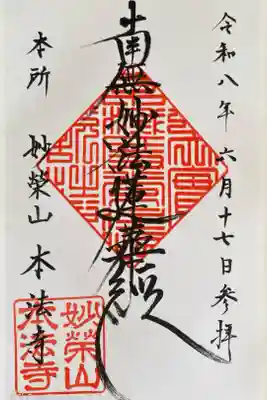 令和八年六月十七日参拝
南無妙法蓮華経
本所 妙榮山 本法寺
妙榮山
本法寺